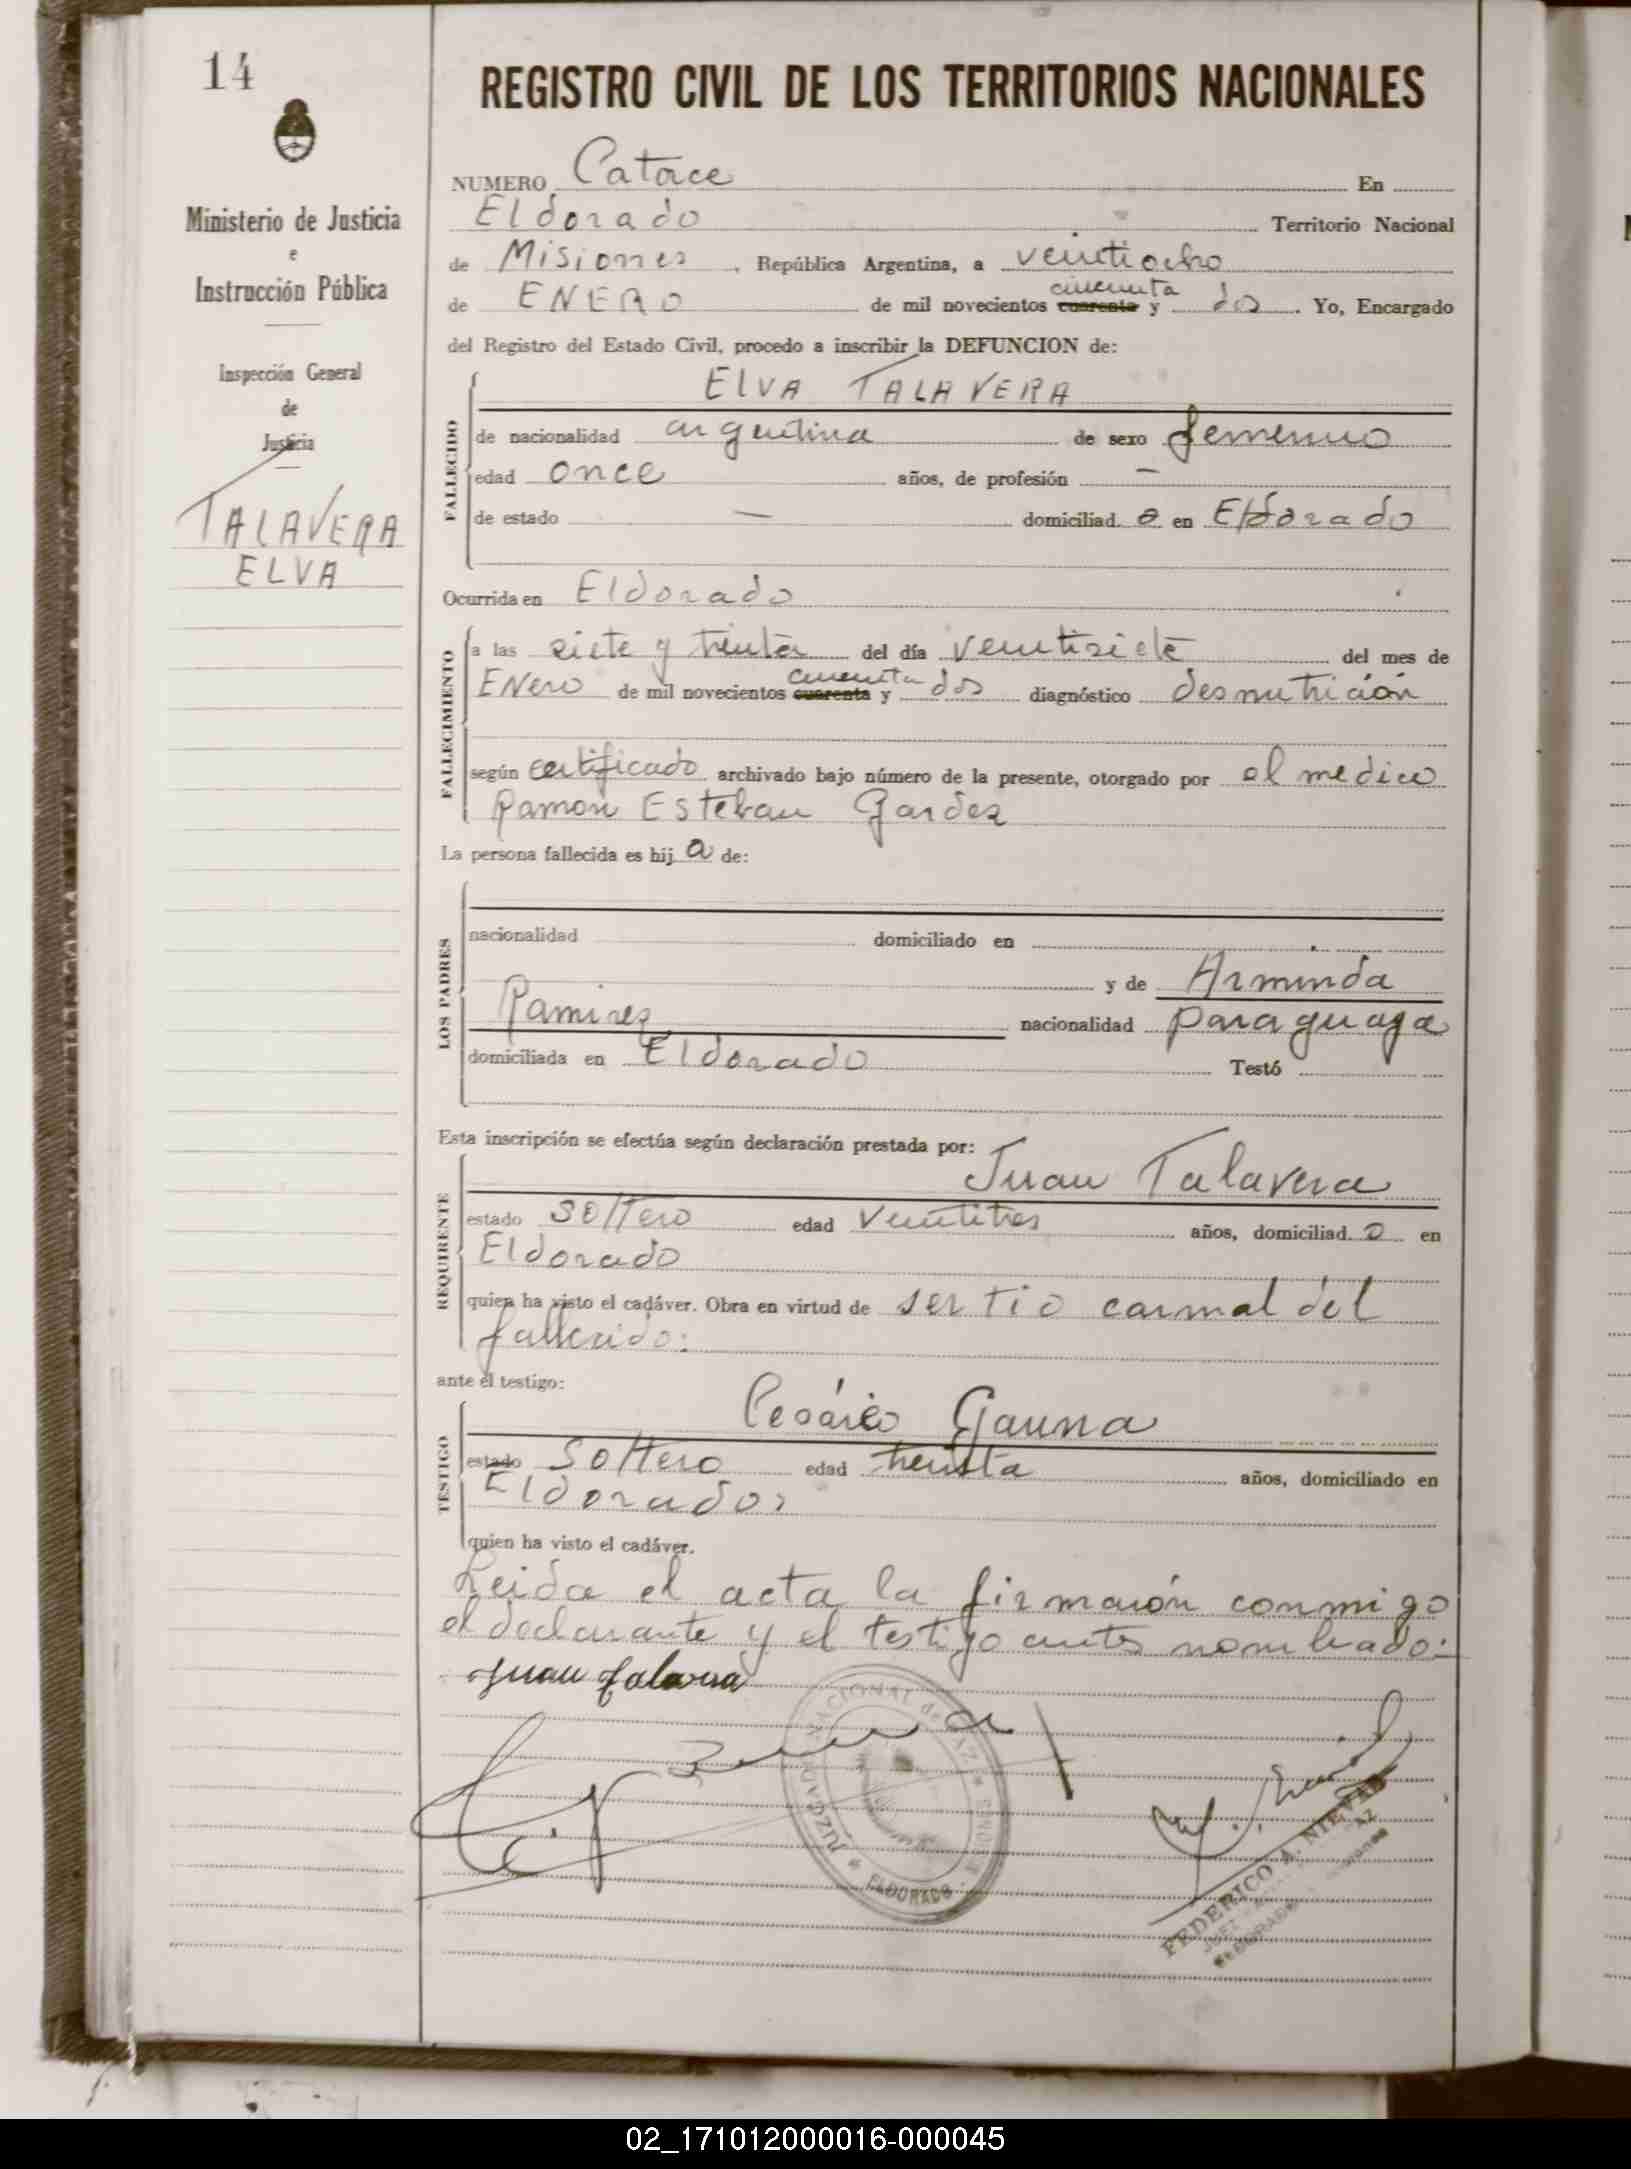 14
Ministerio de Justicia
e
Instrucción Pública
Inspección General
de
Justicia
TALAVERA
ELVA
REGISTRO CIVIL DE LOS TERRITORIOS NACIONALES
NUMERO Catorce En
Eldorado Territorio Nacional
de Misiones, República Argentina, a veintiocho
cincuenta
de ENERO de mil novecientos cuarenta y dos. Yo, Encargado
del Registro del Estado Civil, procedo a inscribir la DEFUNCION de:
ELVA TALAVERA
FALLECIDO
de nacionalidad argentina de sexo femenino
edad once años, de profesión —
de estado — domiciliad a en Eldorado
Ocurrida en Eldorado
FALLECIMIENTO
a las siete y treinta del día veintisiete del mes de
cincuenta
Enero de mil novecientos cuarenta y dos diagnóstico desnutrición
según certificado archivado bajo número de la presente, otorgado por el medico
Ramon Esteban Gardez
La persona fallecida es hij a de:
LOS PADRES
nacionalidad domiciliado en
y de Arminda
Ramirez nacionalidad paraguaya
domiciliada en Eldorado Testó
Esta inscripción se efectúa según declaración prestada por:
Juan Talavera
REQUIRENTE
estado soltero edad veintitres años, domiciliad o en
Eldorado
quien ha visto el cadáver. Obra en virtud de ser tio carnal del
fallecido:
ante el testigo:
Cesáreo Gauna
TESTIGO
estado soltero edad treinta años, domiciliado en
Eldorado,
quien ha visto el cadáver.
Leida el acta la firmarón conmigo
el declarante y el testigo antes nombrado:
Juan Talavera
JUZGADO NACIONAL de PAZ
ELDORADO
FEDERICO A. NIEVAS
02_171012000016-000045